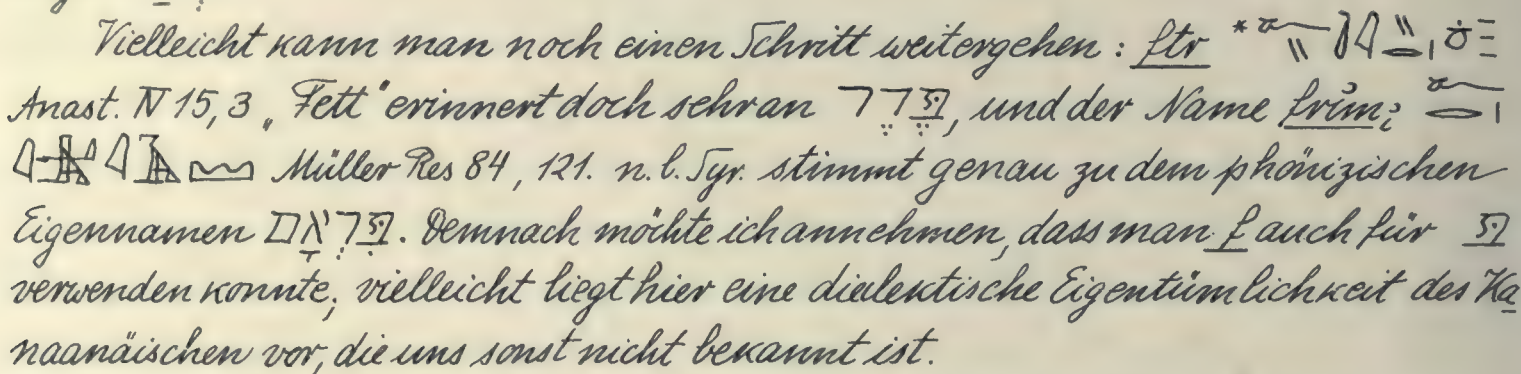 Vielleicht kann man noch einen Schritt weitergehen: ftr *
Anast. IV 15,3 „Fett“ erinnert doch sehr an פֶּדֶר, und der Name
Müller Res 84, 121. n. l. Syr. stimmt genau zu dem phönizischen
Eigennamen פִּרְאָם. Demnach möchte ich annehmen, dass man f auch für פּ
verwenden konnte; vielleicht liegt hier eine dialektische Eigentümlichkeit des Ka
naanäischen vor, die uns sonst nicht bekannt ist.